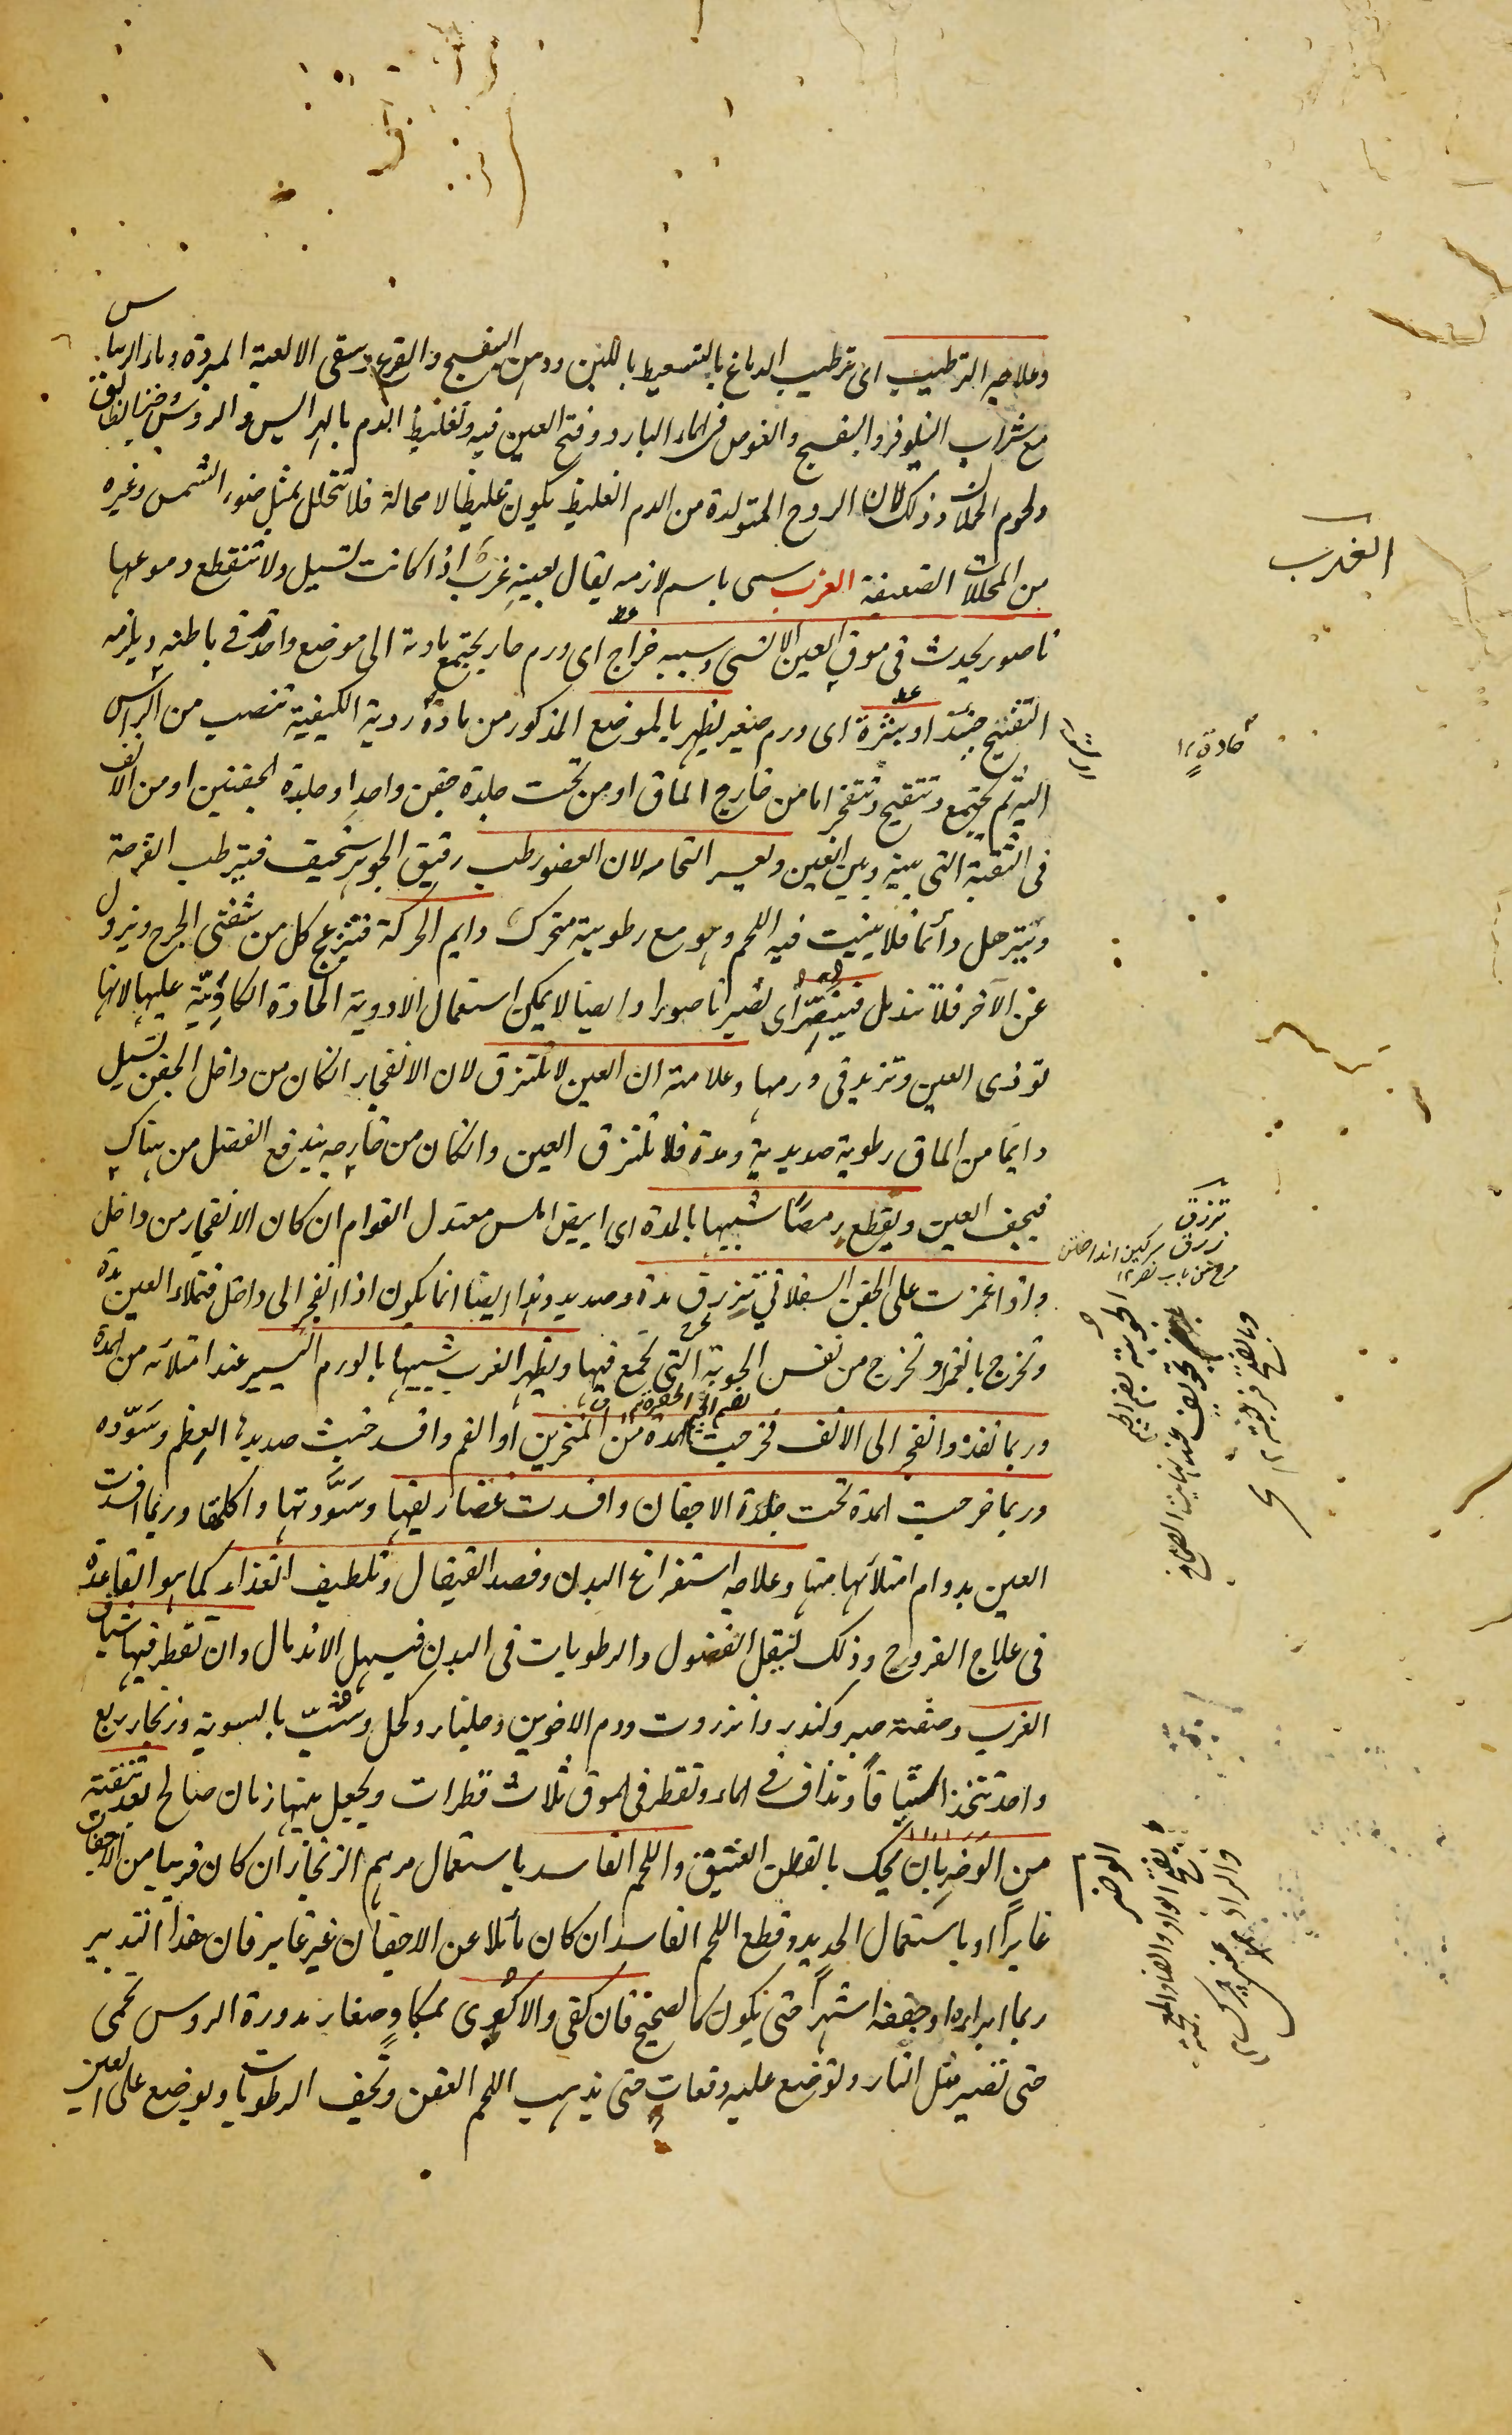 وعلاجه الترطيب اى ترطيب الدماغ بالتسعيط باللبن ودهن البنفسج والقرع وسقى الالعبة المبردة وماء الرياس
مع شراب النيلوفر والبنفسج والغوص فى الماء البارد وفتح العين فيه وتغليظ الدم بالهرايس والروس
ولحوم الحملان وذلك لان الروح المتولدة من الدم الغليظ يكون غليظا لا محالة فلا تتحلل بمثل ضوء الشمس وغيره
من المحللات الضعيفة الغرب سمى باسم لازمه يقال بعينه غرب اذا كانت تسيل ولا تنقطع دموعها
ناصور يحدث فى موق العين الانسى وسببه خراج اى ورم حار يجتمع مادته الى موضع واحد فى باطنه ويلزمه
التقيح حينئذ او بثرة اى ورم صغير يظهر بالموضع المذكور من مادة ردية الكيفية تنصب من الراس
اليه ثم يجتمع وتتقيح وتنفجر اما من خارج الماق او من تحت جلدة جفن واحد او جلدة الجفنين او من الانف
فى الثقبة التى بينه وبين العين ويعسر التحامه لان العضو رطب رقيق الجوهر سخيف فيترطب القرحة
ويترهل دائما فلا ينبت فيه اللحم وهو مع رطوبته متحرك دايم الحركة فينزعج كل من شفتى الجرح ويزول
عن الآخر فلا تندمل فينتصر اى يصير ناصورا وايضا لا يمكن استعمال الادوية الحادة الكاوية عليها لانها
توذى العين وتزيد فى ورمها وعلامته ان العين لا تلتزق لان الانفجار ان كان من داخل الجفن تسيل
دايما من الماق رطوبة صديدية ومدة فلا تلتزق العين وان كان من خارجه يندفع الفضل من هناك
فيجف العين ويقطع رمصا شبيها بالمدة اى ابيض املس معتدل القوام ان كان الانفجار من داخل
واذا غمزت على الجفن السفلانى تنزرق مدة وصديد وهذا ايضا انما يكون اذا انفجر الى داخل فتملاء العين مدة
وتخرج بالغمز او تخرج من نفس الجوبة التى تجمع فيها ويظهر الغرب شبيها بالورم اليسير عند امتلائه من المدة
وربما نفذ وانفجر الى الانف فخرجت المدة من المنخرين او الفم وافسد خبث صديدها العظم وسوده
وربما خرجت المدة تحت جلدة الاجفان وافسدت غضاريفها وسودتها واكلتها وربما افسدت
العين بدوام امتلائها منها وعلاجه استفراغ البدن وفصد القيفال وتلطيف الغذاء كما هو القاعدة
فى علاج القروح وذلك ليقل الفضول والرطوبات فى البدن فيسهل الاندمال وان تقطر فيها شياف
الغرب وصفته صبر وكندر وانزروت ودم الاخوين وجلنار وكحل وشب بالسوية وزنجار ربع
واحد تتخذ اشيافا وتذاف فى الماء وتقطر فى الموق ثلاث قطرات ويجعل بينها زمان صالح بعد تنقيته
من الوضر بان يحك بالقطن العتيق واللحم الفاسد باستعمال مرهم الزنجار ان كان قريبا من الاجفان
غايرا او باستعمال الحديد وقطع اللحم الفاسد ان كان مائلا عن الاجفان غير غاير فان هذا التدبير
ربما ابراه او جففه اشهرا حتى يكون كالصحيح فان كفى والا كوى بمكاو صغار مدورة الروس تحمى
حتى تصير مثل النار وتوضع عليه دفعات حتى يذهب اللحم العفن وتجف الرطوبات ويوضع على العين
الغرب
حادة ١٢
تنزرق
زرق سركين انداختن
مرغ من باب نصر ١٢
الجوبة
الوضر